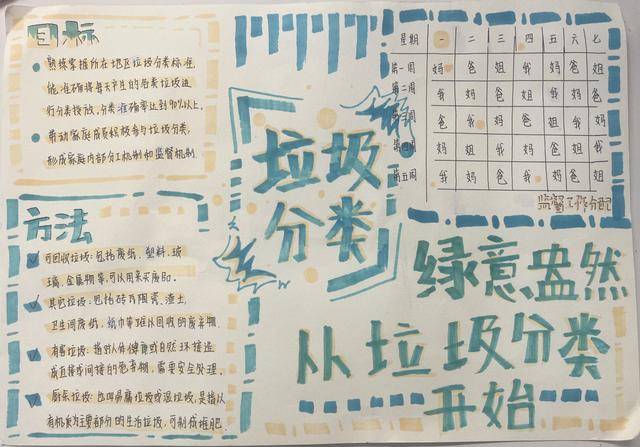 目标
熟练掌握所在地区垃圾分类标准,
能准确将每天产生的各类垃圾进
行分类投放,分类准确率达到90%以上。
带动家庭成员积极参与垃圾分类,
形成家庭内部分工机制和监督机制.
方法
可回收垃圾:包括废纸、塑料、玻
璃、金属物等,可以用来买废品.
其它垃圾:包括砖瓦陶瓷、渣土、
卫生间废纸、纸巾等难以回收的废弃物.
有害垃圾:指对人体健康或自然环境造
成直接或间接的危害物,需要安全处理.
厨余垃圾:也叫易腐垃圾或湿垃圾,是指以
有机质为主要部分的生活垃圾,可制成堆肥.
垃圾
分类
星期 一 二 三 四 五 六 七
第一周 妈 爸 姐 我 妈 爸 姐
第二周 我 妈 爸 我 妈 爸
第三周 爸 我 妈 爸 姐 我 妈
第四周 妈 姐 我 妈 爸 姐 我
第五周 我 妈 爸 我 妈 爸
监督工作分配
绿意盎然
从垃圾分类
开始